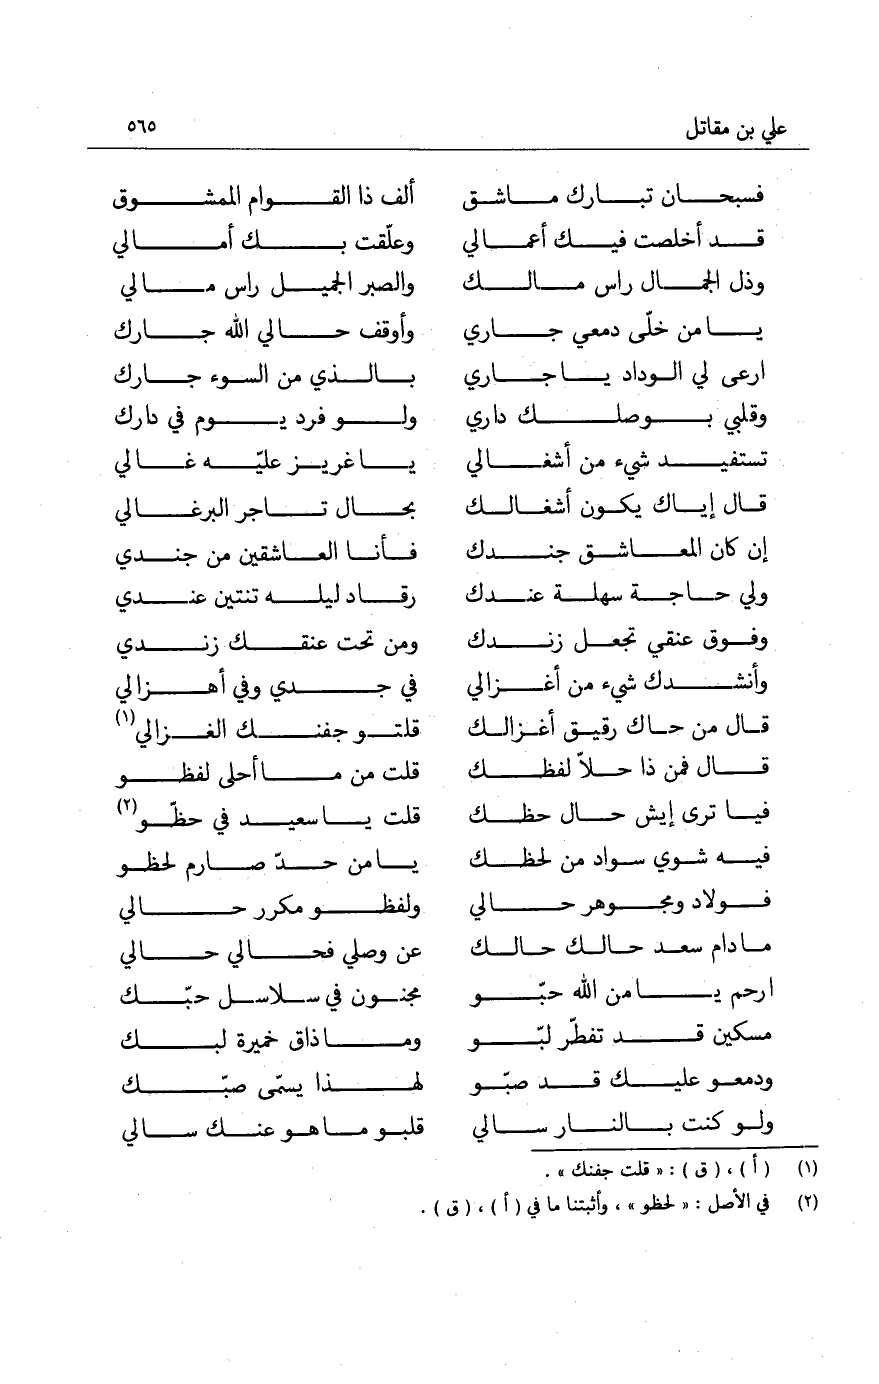 علي بن مقاتل ٥٦٥
فسبحان تبارك ماشق ألف ذا القوام الممشوق
قد أخلصت فيك أعمالي وعلّقت بك أمالي
وذل الجمال راس مالك والصبر الجميل راس مالي
يا من خلّى دمعي جاري وأوقف حالي الله جارك
ارعى لي الوداد يا جاري بالذي من السوء جارك
وقلبي بوصلك داري ولو فرد يوم في دارك
تستفيد شيء من أشغالي يا غريز عليّه غالي
قال إياك يكون أشغالك بحال تاجر البرغالي
إن كان المعاشق جندك فأنا العاشقين من جندي
ولي حاجة سهلة عندك رقاد ليله تنتين عندي
وفوق عنقي تجعل زندك ومن تحت عنقك زندي
وأنشدك شيء من أغزالي في جدي وفي أهزالي
قال من حاك رقيق أغزالك قلتو جفنك الغزالي(١)
قال فمن ذا حلاّ لفظك قلت من ما أحلى لفظو
فيا ترى إيش حال حظك قلت يا سعيد في حظّو(٢)
فيه شوي سواد من لحظك يا من حدّ صارم لحظو
فولاد ومجوهر حالي ولفظو مكرر حالي
مادام سعد حالك حالك عن وصلي فحالي حالي
ارحم يا من الله حبّو مجنون في سلاسل حبّك
مسكين قد تفطّر لبّو وما ذاق خميرة لبك
ودمعو عليك قد صبّو لهذا يسمّى صبّك
ولو كنت بالنار سالي قلبو ما هو عنك سالي
(١) (أ)، (ق): « قلت جفنك ».
(٢) في الأصل: « لحظو »، وأثبتنا ما في (أ)، (ق).